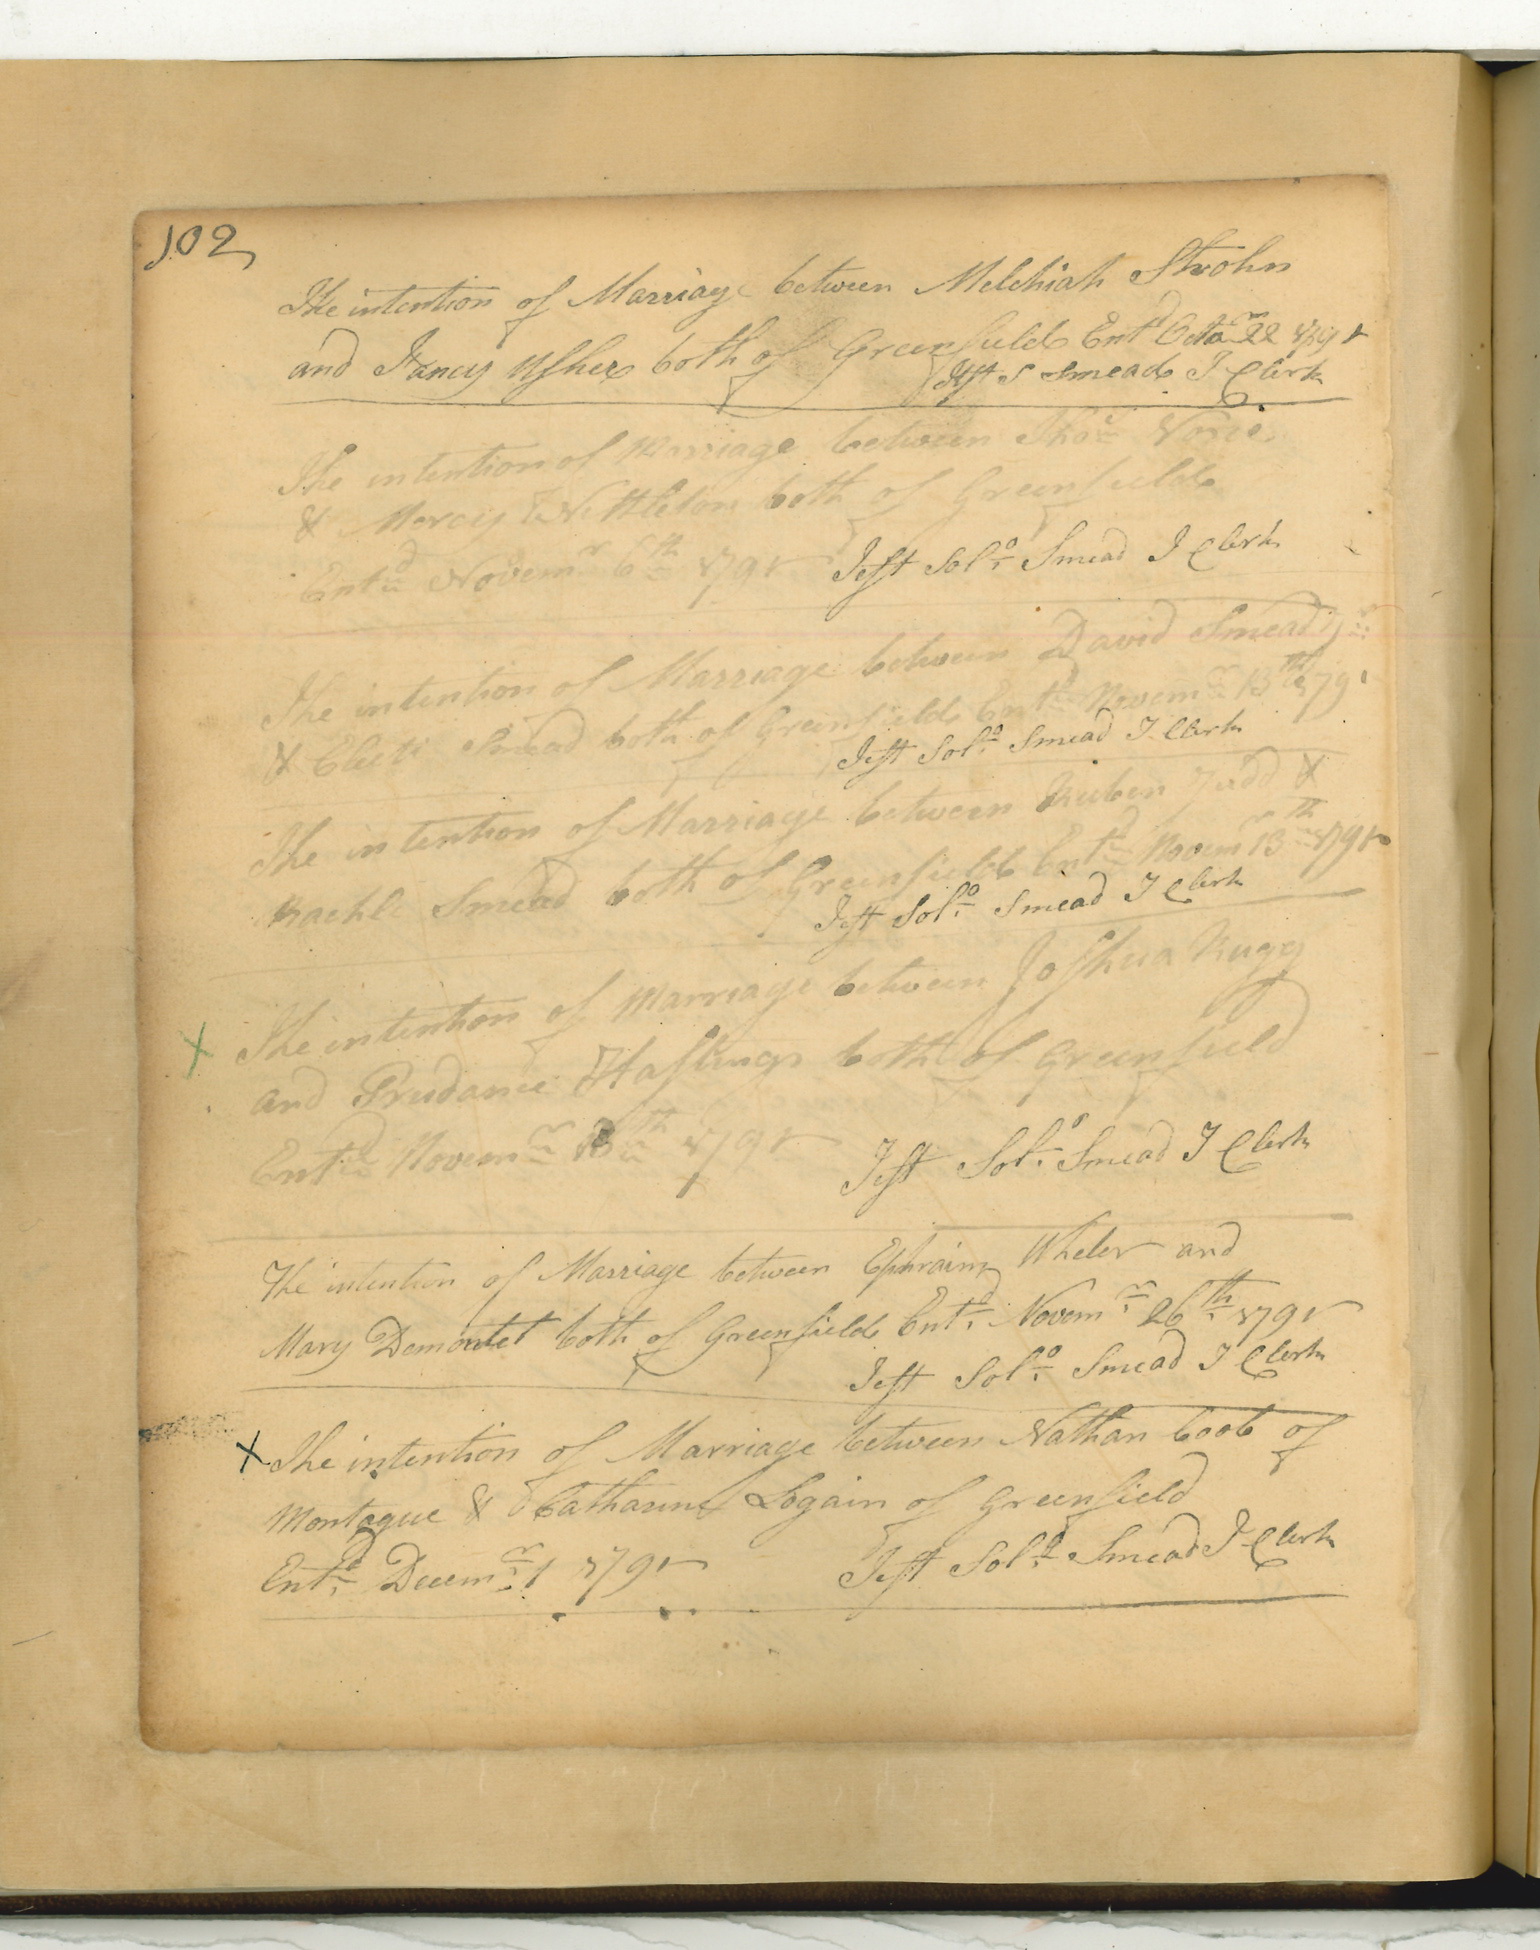 102
The intention of Marriage between Melchiah Strohn
and Nancy Usher both of Greenfield Entd Octor 22 1791
Test S Smead T Clerk
The intention of Marriage between Thos
& Mercy Nettleton both of Greenfield
Entd Novemr 6th 1791 Test Solo Smead T Clerk
The intention of Marriage between David Smead jr
& Electi Smead both of Greenfield Entd Novemr 13th 1791
Test Solo Smead T Clerk
The intention of Marriage between Ruben Judd &
Rachl Smead both of Greenfield Entd Novemr 13th 1791
Test Solo Smead T Clerk
X The intention of Marriage between Joshua Rugg
and Prudance Hastings both of Greenfield
Entd Novemr 13th 1791 Test Solo Smead T Clerk
The intention of Marriage between Ephraim Wheler and
Mary Demontet both of Greenfield Entd Novemr 26th 1791
Test Solo Smead T Clerk
X The intention of Marriage between Nathan Coob of
Montague & Catharine Logain of Greenfield
Entd Decemr 1 1791 Test Solo Smead T Clerk